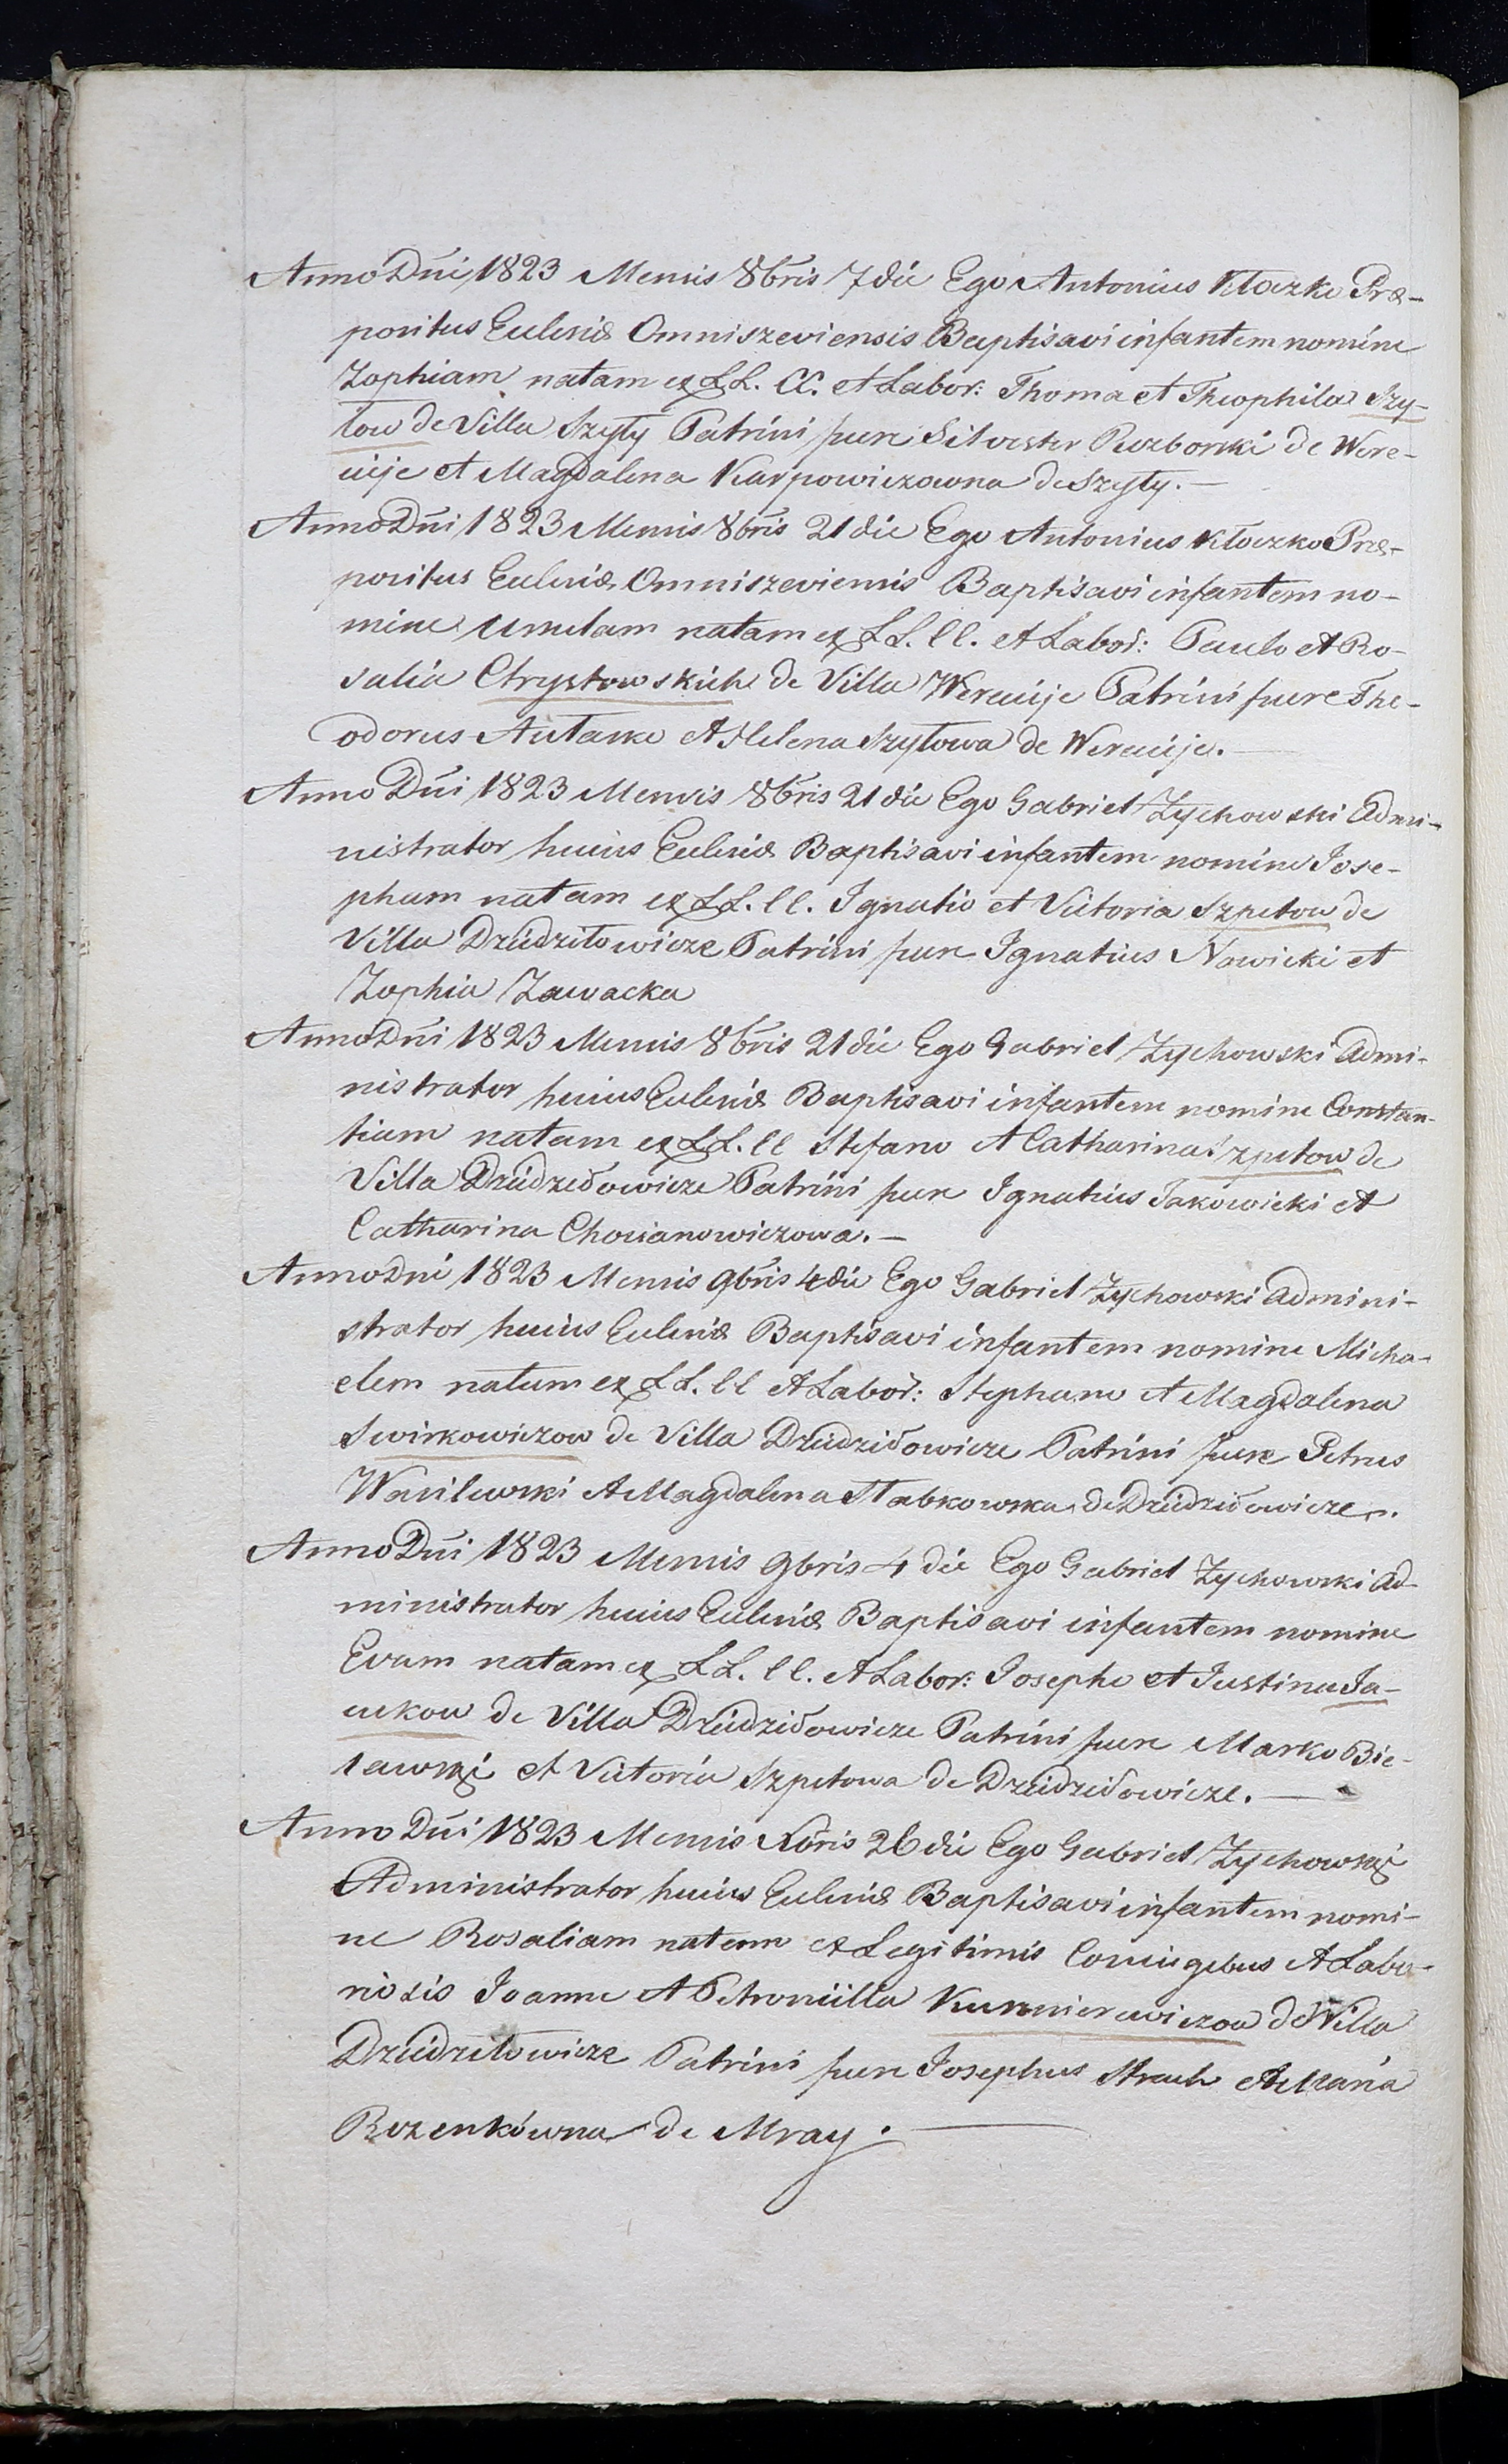 Anno Dni 1823 Mensis 8bris 7 die Ego Antonius Kłoczko Præ-
positus Ecclesiæ Omniszeviensis Baptisavi infantem nomine
Zophiam natam ex LL. CC. et Labor: Thoma et Theophila Szy-
tow de Villa Szyty Patrini fuere Silvester Rozborski de Were-
uije et Magdalena Karpowiczowna de Szyty. —
Anno Dni 1823 Mensis 8bris 21 die Ego Antonius Kłoczko Præ-
positus Ecclesiæ Omniszeviensis Baptisavi infantem no-
mine Ursulam natam ex LL. CC. et Labor: Paulo et Ro-
salia Chrystowskich de Villa Wereuije Patrini fuere The-
odorus et Helena Szytowa de Wereuije. —
Anno Dni 1823 Mensis 8bris 21 die Ego Gabriel Zychowski Admi-
nistrator huius Ecclesiæ Baptisavi infantem nomine Jose-
pham natam ex LL. CC. Ignatio et Victoria Szpetow de
Villa Dziudziłowicze Patrini fuere Ignatius Nowicki et
Zophia Zawacka
Anno Dni 1823 Mensis 8bris 21 die Ego Gabriel Zychowski Admi-
nistrator huius Ecclesiæ Baptisavi infantem nomine Constan-
tiam natam ex LL. CC Stefano et Catharina Szpetow de
Villa Dziudziłowicze Patrini fuere Ignatius Jakowicki et
Catharina Chocianowiczowa. —
Anno Dni 1823 Mensis 9bris 4 die Ego Gabriel Zychowski Admini-
strator huius Ecclesiæ Baptisavi infantem nomine Micha-
elem natum ex LL. CC et Labor: Stephano et Magdalena
Swirkowiczow de Villa Dziudziłowicze Patrini fuere Petrus
Wasilewski et Magdalena Słabkowska de Dziudziłowicze.
Anno Dni 1823 Mensis 9bris 4 die Ego Gabriel Zychowski Ad-
ministrator huius Ecclesiæ Baptisavi infantem nomine
Evam natam ex LL. CC. et Labor: Josepho et Justina Ja-
cukow de Villa Dziudziłowicze Patrini fuere Marko Bie-
lawski et Victoria Szpetowa de Dziudziłowicze. —
Anno Dni 1823 Mensis Xbris 26 die Ego Gabriel Zychowski
Administrator huius Ecclesiæ Baptisavi infantem nomi-
ne Rosaliam natam ex Legitimis Coniugibus et Labo-
riosis Joanne et Petronilla Kusznierewiczow de Villa
Dziudziłowicze Patrini fuere Josephus Strach et
Rozenkówna de Mray. —